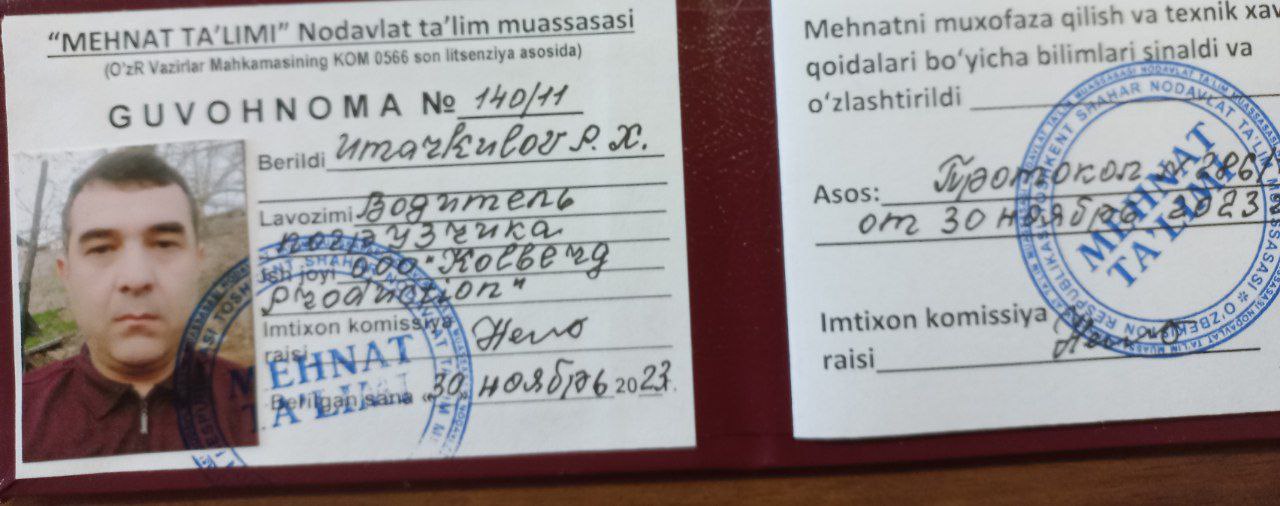 “MEHNAT TA’LIMI” Nodavlat ta’lim muassasasi
(O‘zR Vazirlar Mahkamasining KOM 0566 son litsenziya asosida)
GUVOHNOMA № 140/11
Berildi Umarkulov P. X.
Lavozimi Водитель
погрузчика
Ish joyi ООО "Колверд
Production"
Imtixon komissiya
raisi
Berilgan sana «30 ноябрь 2023.
MEHNAT
TA'LIMI
Mehnatni muxofaza qilish va texnik xav
qoidalari bo‘yicha bilimlari sinaldi va
o‘zlashtirildi
Asos: Протокол № 286/
от 30 ноября 2023
Imtixon komissiya
raisi
MEHNAT
TA'LIMI